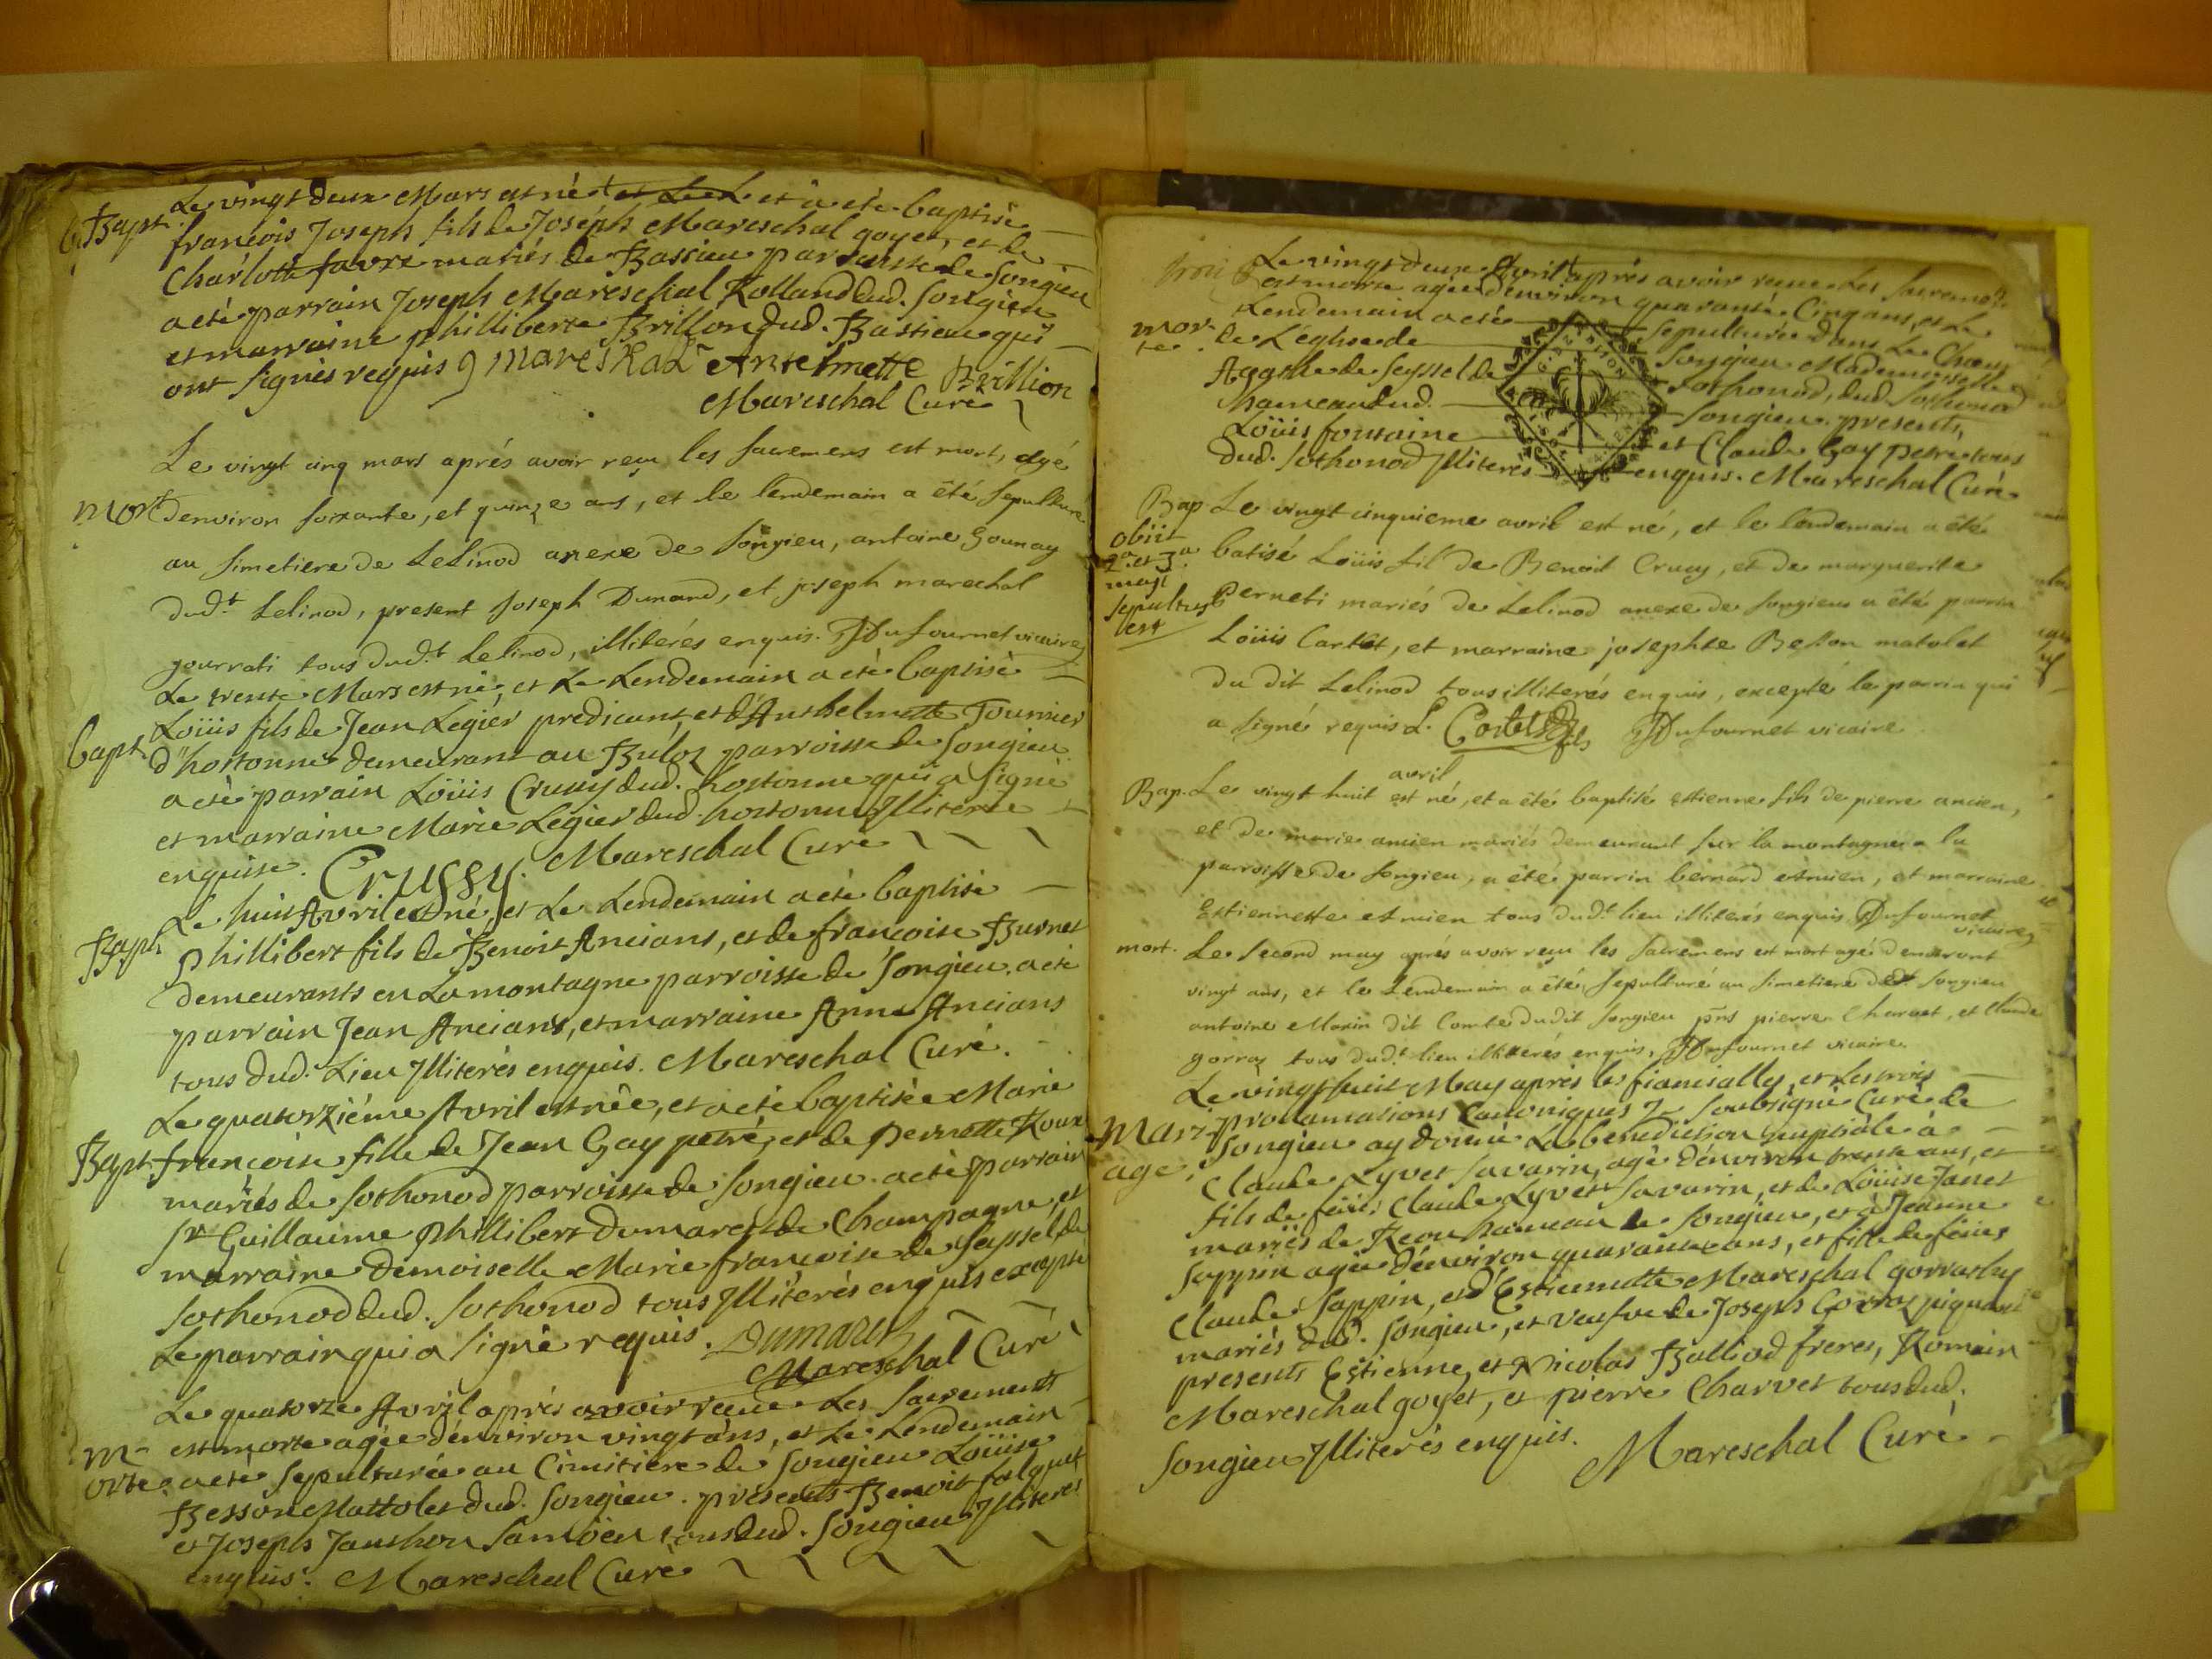 Le vingt deux Mars est né et a été baptisé
Bapt. francois Joseph fils de Joseph Mareschal goyet, et de
Charlotte favre mariés de Bassieu parroisse de Songieu
a eté parrain Joseph Mareschal Rolland dud. Songieu
et marraine Philliberte Brillon dud. Bassieu qui
ont signés requis J mareskal Antelmette Brillion
Mareschal Curé
Le vingt cinq mars aprés avoir reçu les sacremens est mort, agé
mort denviron soixante, et quinze ans, et le lendemain a été sepulturé
au simetiere de Lelinod anexe de songieu, antoine gounay
dud.t Lelinod, present joseph Dunand, et joseph marechal
gourrati tous dud.t Lelinod, illiterés enquis. Dufournet vicaire
Le trente Mars est né, et Le Lendemain a eté baptisé
Loüis fils de Jean Legier predicant, et d'Anthelmette Tournier
bapt. d'hostonne demeurant au Buloz parroisse de Songieu
a eté parrain Loüis Crussy dud. hostonne qui a signé
et marraine Marie Legier dud. hostonne Illiterée
enquise. Crussy. Mareschal Curé
Le huit Avril est né, et Le Lendemain a eté baptisé
Bapt. Phillibert fils de Benoit Ancians, et de francoise Burnet
demeurants en La montagne parroisse de Songieu. a eté
parrain Jean Ancians, et marraine Anne Ancians
tous dud. Lieu Illiterés enquis. Mareschal Curé.
Le quatorziéme Avril est née, et a eté baptisée Marie
Bapt. francoise fille de Jean Gay petré, et de Pernette Roux
mariés de Sothonod parroisse de Songieu. a eté parrain
Sr Guillaume Phillibert Dumarest de Champagne, et
marraine demoiselle Marie francoise de Seyssel de
Sothonod dud. Sothonod tous Illiterés enquis excepté
Le parrain qui a signé requis. Dumarest
Mareschal Curé
Le quatorze Avril aprés avoir receue Les Sacrements
m- est morte agée d'environ vingt ans, et Le Lendemain
orte a eté sepulturée au Cimitiere de Songieu Loüise
Besson Mattolet dud. Songieu. presents Benoit falquet
et Joseph Janthon Samöen tous dud. Songieu Illiterés
enquis. Mareschal Curé
Le vingt deux Avril aprés avoir receue Les sacremts.
est morte agée d'environ quarante Cinq ans, et Le
Lendemain a eté sepulturée dans Le Chœur
mor- te. de L'église de Songieu Mademoiselle
Agathe de Seyssel de Sothonod, dud. Sothonod
hameau dud. Songieu. presents,
Loüis fontaine et Claude Gay Petre tous
dud. Sothonod Illiterés enquis. Mareschal Curé
Bap. Le vingt cinquieme avril est né, et le lendemain a été
obiit
2a et 3a
maji
sepultus
est
batisé Loüis fil de Benoit Crucy, et de marguerite
Perneti mariés de Lelinod anexe de songieu a été parrin
Loüis Cartet, et marraine josephte Besson matolet
du dit Lelinod tous illiterés enquis, excepté le parrin qui
a signé requis L. Cartet fils Dufournet vicaire
avril
Bap. Le vingt huit est né, et a été baptisé estienne fils de pierre ancien,
et de marie ancien mariés demeurant sur la montagne a la
parroisse de songieu, a été parrin bernard
Estiennette tous dud.t lieu illiterés enquis Dufournet
vicaire
mort. Le second may aprés avoir reçu les sacremens est mort agé denviront
vingt ans, et le Lendemain a été sepulturé au simetiere de songieu
antoine Marin dit Comte du dit songieu pnts pierre Charvet, et Claude
gorraz tous dud.t lieu illiterés enquis. Dufournet vicaire.
Le vingt huit May aprés les fiancialles, et Les trois
Mari- proclamations Canoniques Je soubsigné Curé de
age. Songieu ay donné La benediction nuptiale à
Claude Lyvet Savarin, agé d'environ trente ans, et
fils de feüs Claude Lyvet Savarin, et de Loüise Janet
mariés de hameau de Songieu, et à Jeanne
Sappin agée d'environ quarante ans, et fille de feües
Claude Sappin, et d'Estiennette Mareschal gorrathy
mariés dud. Songieu, et veufve de Joseph Gorraz piquant
presents Estienne, et Nicolas Balliod freres, Romain
Mareschal goyet, et pierre Charvet tous dud.
Songieu Illiterés enquis. Mareschal Curé